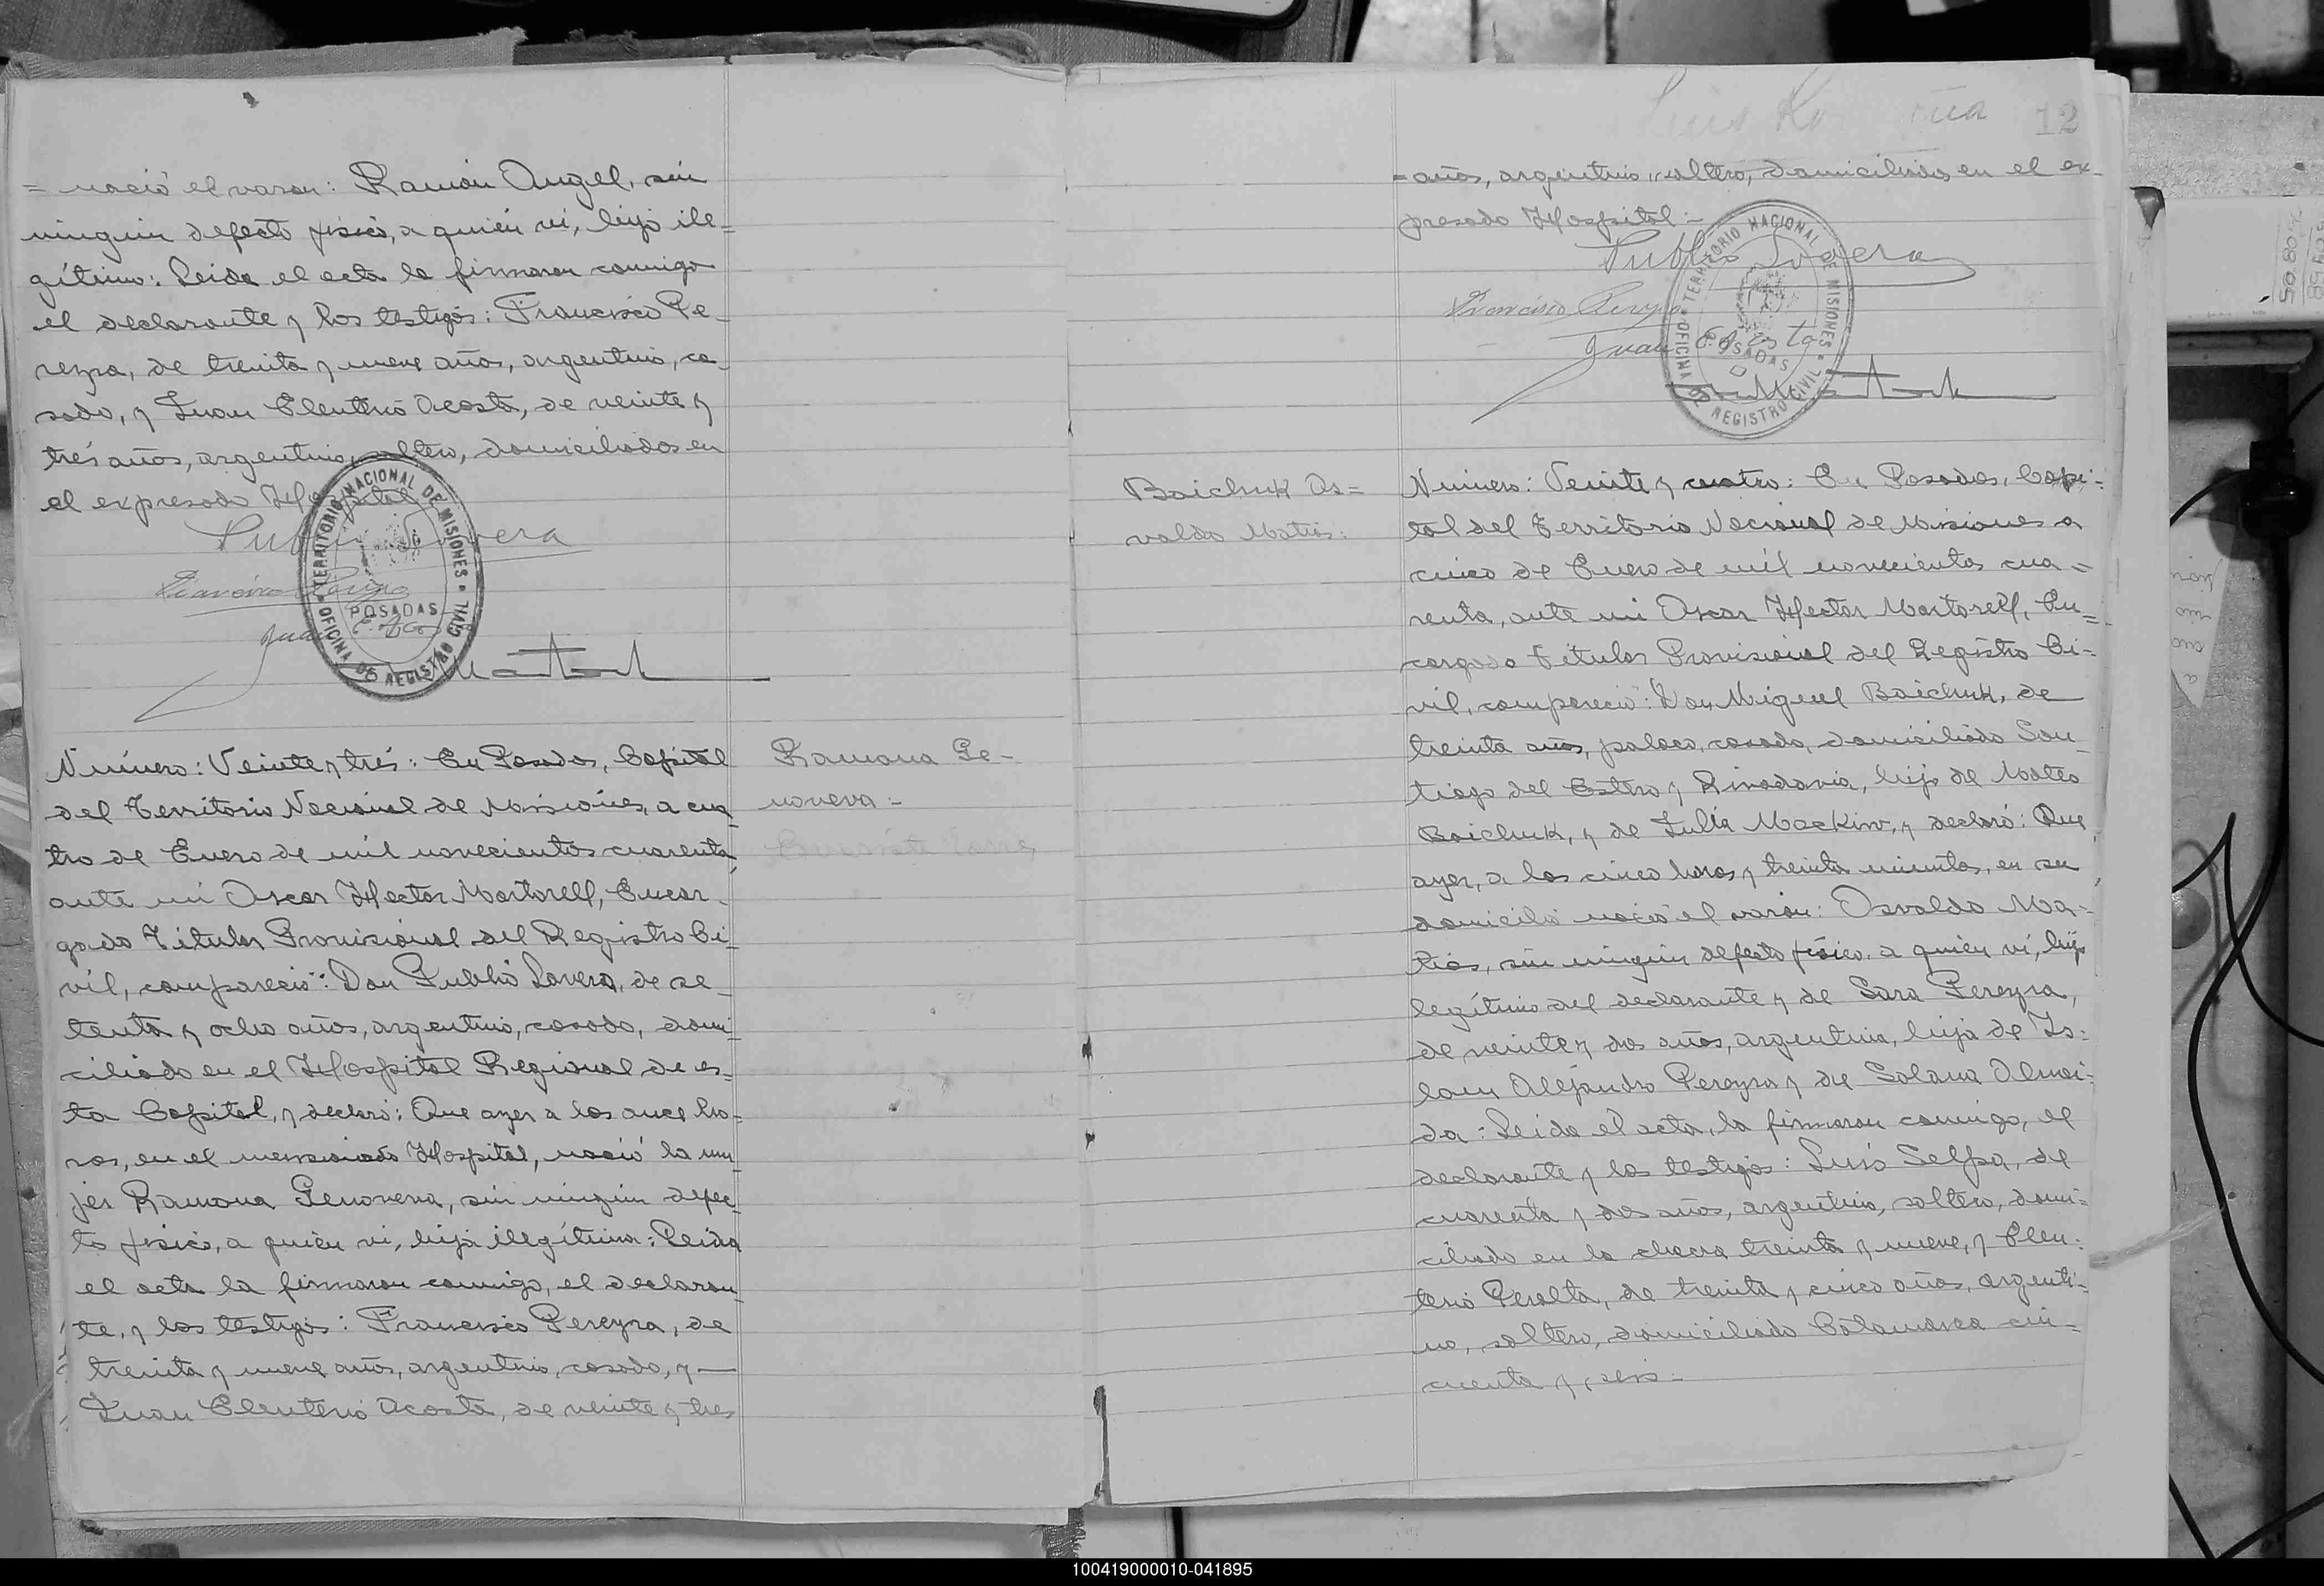 = nació el varon: Ramón Angel, sin
ningun defecto fisico, a quién vi, hijo ile=
gítimo: Leida el acta la firmaron conmigo
el declarante y los testigos: Francisco Pe-
reyra, de treinta y nueve años, argentino, ca-
sado, y Juan Eleuterio Acosta, de veinte y
tres años, argentino, soltero, domiciliados en
el expresado Hospital
TERRITORIO NACIONAL DE MISIONES
POSADAS
OFICINA DE REGISTRO CIVIL
Número: Veinte y trés: En Posadas, Capital
del Territorio Nacional de Misiones, a cua
tro de Enero de mil novecientos cuarenta,
ante mi Oscar Hector Martorell, Encar-
gado Titular Provisional del Registro Ci-
vil, compareció: Don Publio Lovera, de se-
tenta y ocho años, argentino, casado, domi-
ciliado en el Hospital Regional de es=
ta Capital, y declaró: Que ayer a las once ho=
ras, en el mensionado Hospital, nació la mu
jer Ramona Genoveva, sin ningun defec
to fisico, a quién vi, hija ilegítima: Leida
el acta la firmaron conmigo, el declaran
te, y los testigos: Francisco Pereyra, de
treinta y nueve años, argentino, casado, y —
Juan Eleuterio Acosta, de veinte y tres
Ramona Ge-
noveva:-
12
= años, argentino, soltero, domiciliados en el ex-
presado Hospital:-
Publio Lovera
TERRITORIO NACIONAL DE MISIONES
POSADAS
OFICINA DE REGISTRO CIVIL
Baichuk Os=
valdo Matias:
Número: Veinte y cuatro: En Posadas, Capi-
tal del Territorio Nacional de Misiones a
cinco de Enero de mil novecientos cua=
renta, ante mi Oscar Hector Martorell, En=
cargado Titular Provisional del Registro Ci-
vil, compareció: Don Miguel Baichuk, de
treinta años, polaco, casado, domiciliado San-
tiago del Estero y Rivadavia, hijo de Mateo
Baichuk, y de Julia Mackiw, y declaró: Que
ayer, a las cinco horas y treinta minutos, en su
domicilio nació el varón: Osvaldo Ma-
tias, sin ningun defecto fisico, a quién vi, hijo
legítimo del declarante y de Sara Pereyra,
de veinte y dos años, argentina, hija de
Alejandro Pereyra y de Solana Almei-
da: Leida el acta, la firmaron conmigo, el
declarante y los testigos: Luis Selpa, de
cuarenta y dos años, argentino, soltero, domi-
ciliado en la chacra treinta y nueve, y Eleu-
terio Peralta, de treinta y cinco años, argenti-
no, soltero, domiciliado Catamarca cin=
cuenta y seis:-
100419000010-041895